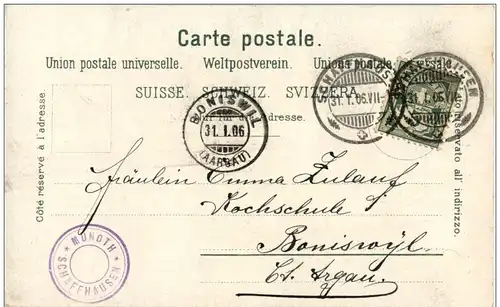 Carte postale.
Union postale universelle. Weltpostverein. Unione postale universale.
SUISSE. SCHWEIZ. SVIZZERA.
Nur für die Adresse.
Côté réservé à l'adresse.
Lato riservato all' indirizzo.
BONISWIL
31. I. 06
(AARGAU)
SCHAFFHAUSEN
31. I. 06. VII-
SCHAFFHAUSEN
31. I. 06. VII-
Fräulein Emma Zulauf
Kochschule
Boniswyl
Ct. Argau.
* MUNOTH *
SCHAFFHAUSEN